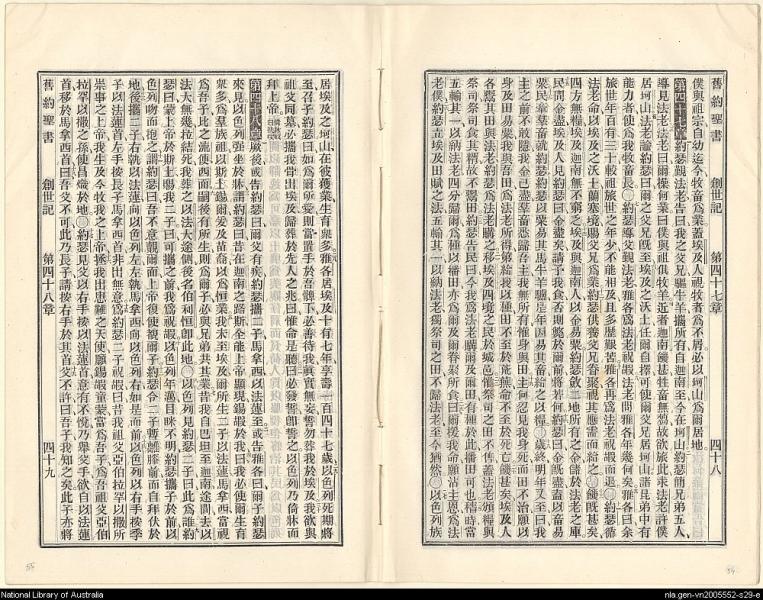 舊約聖書 創世記 第四十七章 四十八
僕與祖宗自幼迄今牧畜爲業蓋埃及人視牧者爲不屑必以坷山爲爾居地
第四十七章 約瑟覲法老告曰我之父兄驅牛羊攜所有自迦南至今在坷山約瑟簡兄弟五人
導見法老法老曰爾操何業曰僕與祖俱牧羊近者迦南饑甚牲畜無芻故欲旅此來法老許僕
居坷山法老諭約瑟曰爾之父兄旣至埃及之沃土任爾自擇可使爾父兄居坷山諸昆弟中有
能力者使爲我牧畜長約瑟導父覲法老雅各爲法老祝嘏法老問雅各年幾何矣雅各曰余
旅世年百有三十較祖旅世之年少不能相及且多歷艱苦雅各再爲法老祝嘏而退約瑟循
法老命以埃及之沃土蘭塞境賜父兄爲業約瑟供養父兄眷聚視其應需而給之饑旣甚矣
四方無糧埃及迦南無不窮乏埃及與迦南人以金易粟約瑟斂二地所有之金儲於法老之庫
民間金盡埃及人見約瑟曰金盡矣請予我食否則斃於爾前將若何約瑟曰金旣盡盍以畜易
粟民衆牽畜就約瑟約瑟以粟易其馬牛羊驢是年因易其畜給之以糧歲終明年又至曰我
主之前不敢隱我金已盡羣畜悉歸吾主我無所有惟身與田主何忍見我身死而田不治願以
身及田易粟我與吾田俱爲法老所得第給我以種田不至於荒無命不至於死亡饑甚矣埃及人
各鬻其田與法老約瑟爲法老購之移埃及四境之民於城邑惟祭司之田不售蓋法老頒糧與
祭司祭司食其糈故不鬻田約瑟告民曰今我爲法老購爾及爾田有種於此播田可也穡時當
五輸其一以納法老四分歸爾爲種以播田亦爲爾及爾眷聚所食曰爾援我命願沾主恩爲法
老僕約瑟立埃及田賦之法五輸其一以納法老獨祭司之田不歸法老至今猶然以色列族
居埃及之坷山在彼獲業生育衆多雅各居埃及十有七年享壽一百四十七歲以色列死期將
至召子約瑟曰如爲爾所愛則當置手於吾髀下必善待我眞實無妄勿葬我於埃及我欲與
祖父同墓必攜我骨出埃及歸葬於先人之兆曰惟命是聽曰必發誓卽誓之以色列乃倚牀而
拜上帝
第四十八章 厥後或告約瑟曰爾父有疾約瑟攜二子馬拿西以法蓮至或告雅各曰爾子約瑟
來見以色列強坐於牀謂約瑟曰昔在迦南之路斯全能上帝顯現錫嘏於我曰我必使爾生育
衆多爲羣族祖以斯土錫爾爰及苗裔以爲恒業我未至埃及爾所生二子以法蓮馬拿西當視
爲吾子與流便西面同嗣後有所生則爲爾子必與兄弟共其業昔我自巴坦至迦南途間去以
法大無幾拉結死我葬之以法大途側後者伯利恒卽此地以色列見約瑟二子曰此爲誰約
瑟曰蒙上帝於斯土賜我二子曰可攜之前我爲祝嘏以色列年邁目眯不明約瑟攜子於前以
色列吻而抱之謂約瑟曰吾不意覩爾面上帝復使視爾子約瑟令二子暫離膝前而自拜伏於
地後攜二子右執以法蓮向以色列左左執馬拿西向以色列右如是而前以色列以右手按季
子以法蓮首左手按長子馬拿西首非出無意爲約瑟二子祝嘏曰昔我祖父亞伯拉罕以撒所
崇事之上帝我生及今牧我之上帝拯我出患難之天使願錫嘏童蒙當爲吾子爲吾祖父亞伯
拉罕以撒之孫使昌熾於地約瑟見父以右手按以法蓮首意有不悅乃舉父手欲自以法蓮
首移於馬拿西首曰吾父不可此乃長子請按右手於其首父不許曰吾子我知之矣此子亦將
舊約聖書 創世記 第四十八章 四十九
National Library of Australia
nla.gen-vn2005552-s29-e